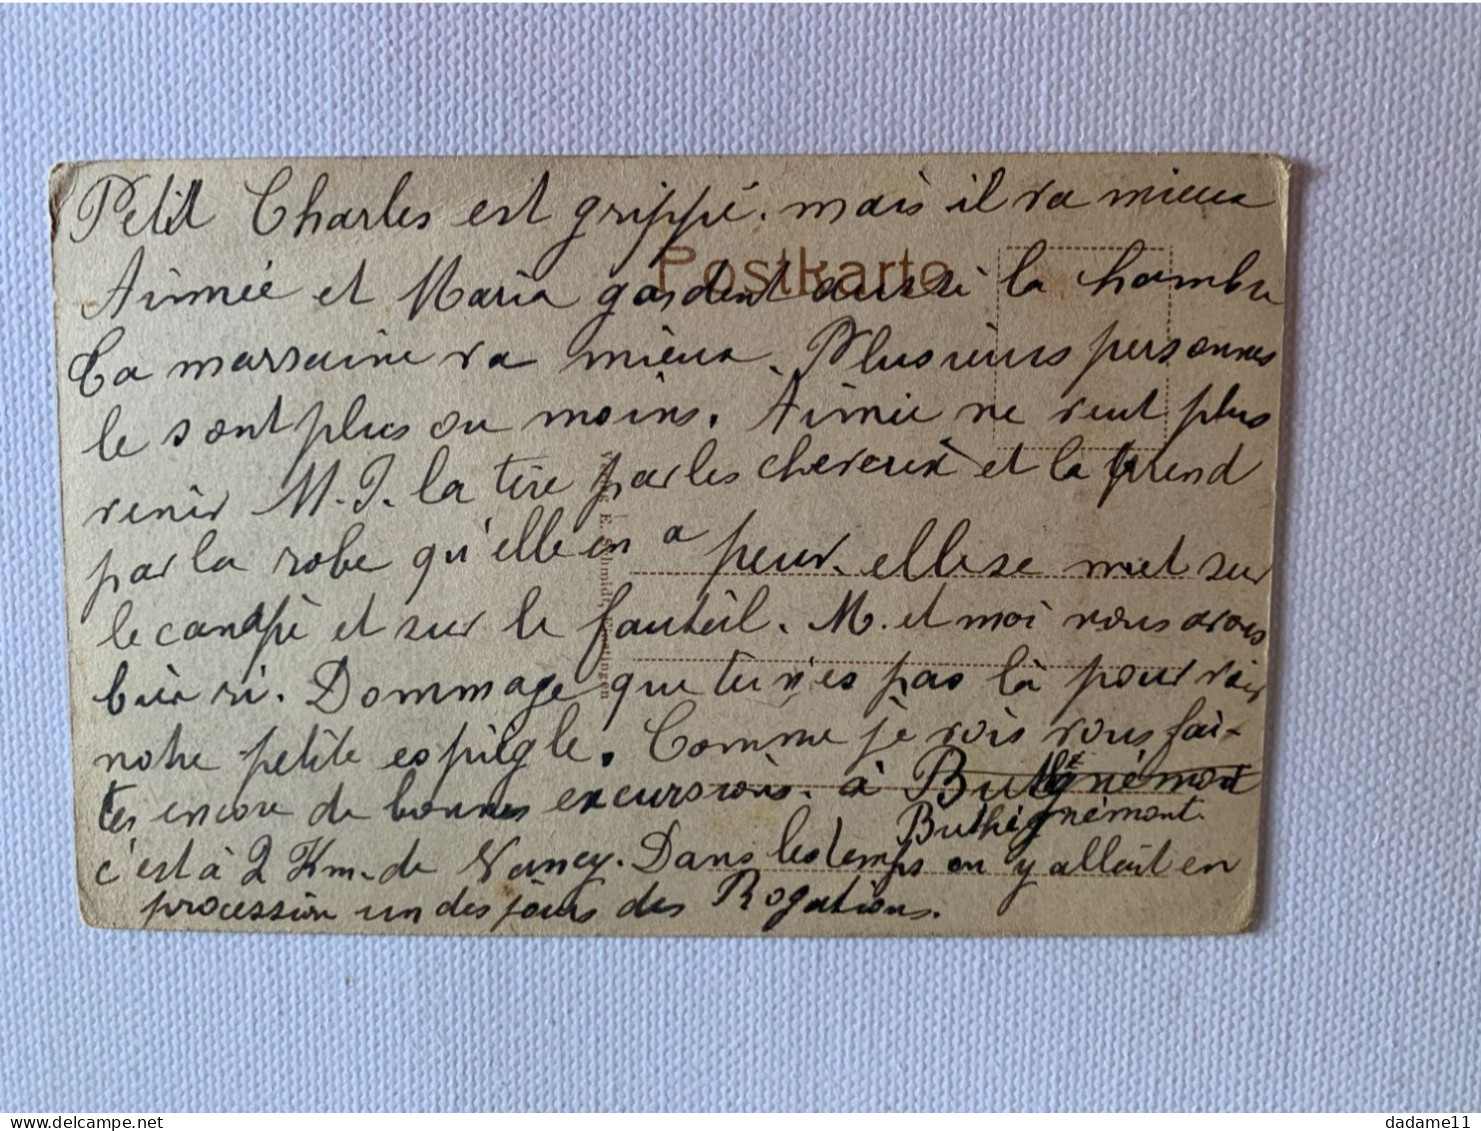 Petit Charles est grippé. mais il va mieux
Postkarte
Aimée et Maria gardent aussi la chambre
Ta marraine va mieux. Plusieurs personnes
le sont plus ou moins. Aimée ne veut plus
venir M. J. la tire par les cheveux et la prend
par la robe qu'elle en a peur. elle se met sur
le canapé et sur le fauteuil. M. et moi nous avons
bien ri. Dommage que tu n'es pas là pour voir
notre petite espiègle. Comme je vois vous fai-
tes encore de bonnes excursions. à Buthégnémont
Buthégnémont.
c'est à 2 Km. de Nancy. Dans les temps on y allait en
procession un des jours des Rogations.
dadame11